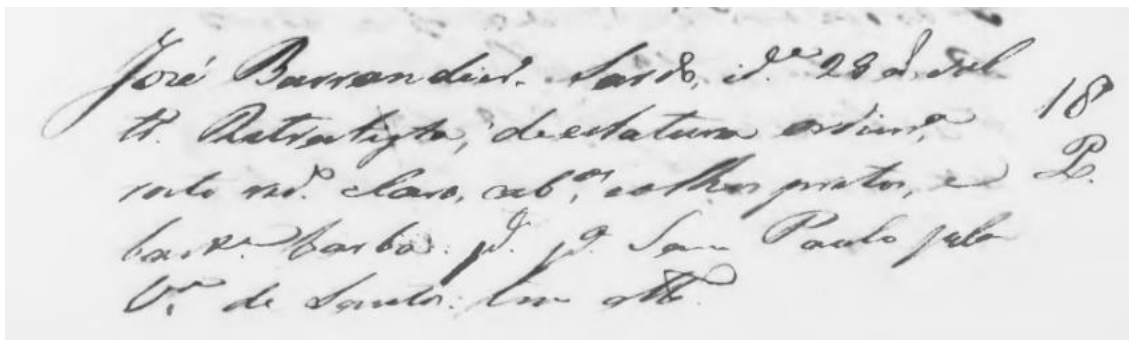 José Barrandier. Sardo, id.e 28 a. sol
tr.º Retratista, de estatura ordin.ª 18
rosto red.º claro, cab.os, e olhos pretos, e P.
bast.e barba. p.ª São Paulo pela
V.ª de Santos. Em